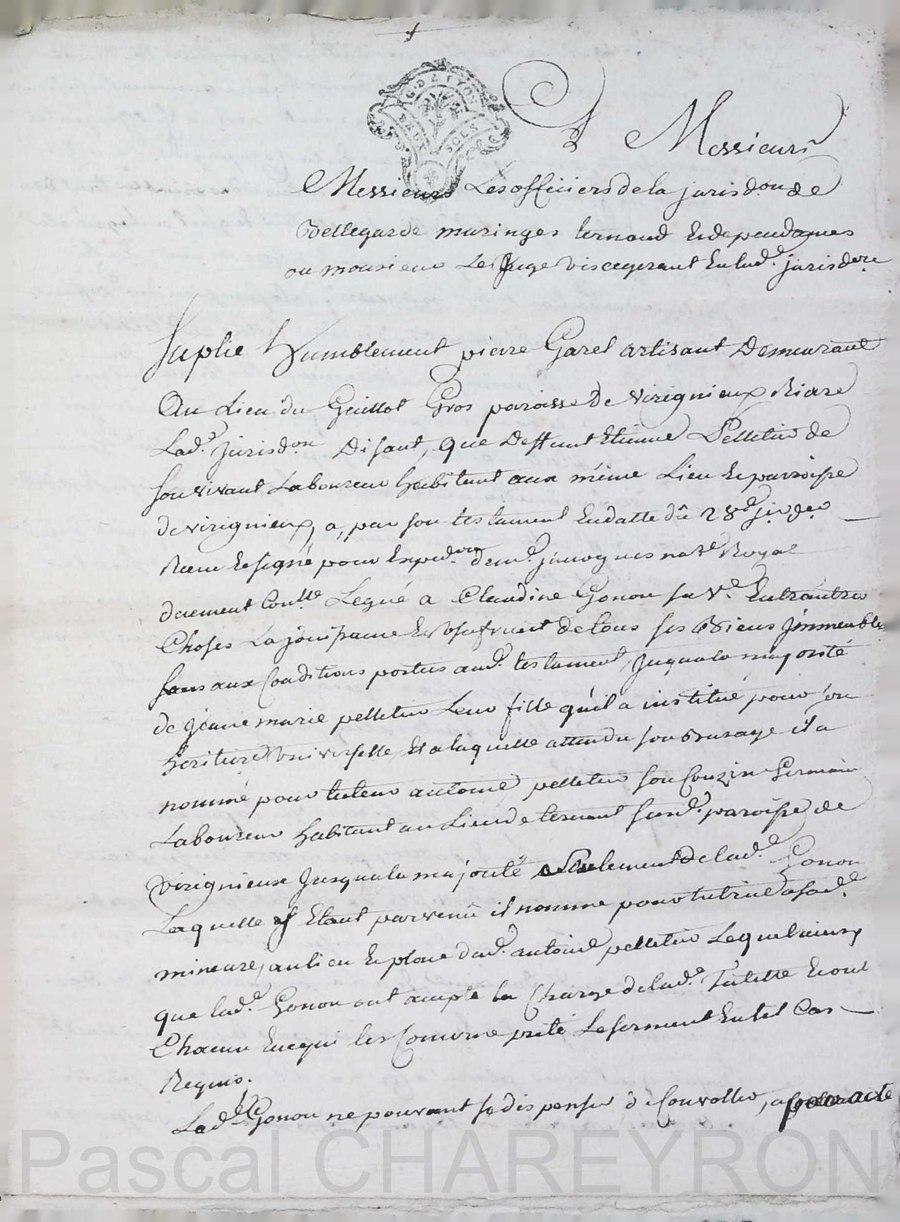 G. D. LYON
DEUX SOLS
A Messieurs
Messieurs Les officiers de la jurisdon de
Bellegarde maringes ternand & dependances
ou monsieur Le Juge viscegerant En lade. jurisdon
Suplie humblement pierre Garel artisant Demeurant
Au Lieu du Guillot Gros paroisse de virignieux Riere
Lade. jurisdon Disant, que Deffunt Etienne Pelletier de
son vivant Laboureur habitant aux même Lieu & parroisse
de virignieux, a, par son testament En datte du 28e
Receu & signé pour Expedon. de me. jauoques nore Royal
duement Conlle Legué à Claudine Gonon sa ve. Entrautre
Choses La jouissance & Usufruit de tous ses Biens jmmeubles
sous aux Conditions portés aud. testament, jusqua la majorité
de jeanne marie pelletier Leur fille quil a institué pour son
héritiere Universelle, Et a laquelle attendu son bas age il a
nommé pour tuteur antoine pelletier son Couzin Germain
Laboureur habitant au Lieu de ternant susd. paroisse de
virignieux jusqua la majorité seulement de lade. Gonon
Laquelle y Etant parvenue il nomme pour tutrice a sade.
mineure, au lieu & place dud. antoine pelletier Lequel
que lade. Gonon ont accepté la Charge de lade. Tutelle & ont
Chacun En ce qui les Concerne preté Le serment En tel Cas
Requis.
Lade. Gonon ne pouvant se dispenser de Convoller, a par acte
Pascal CHAREYRON